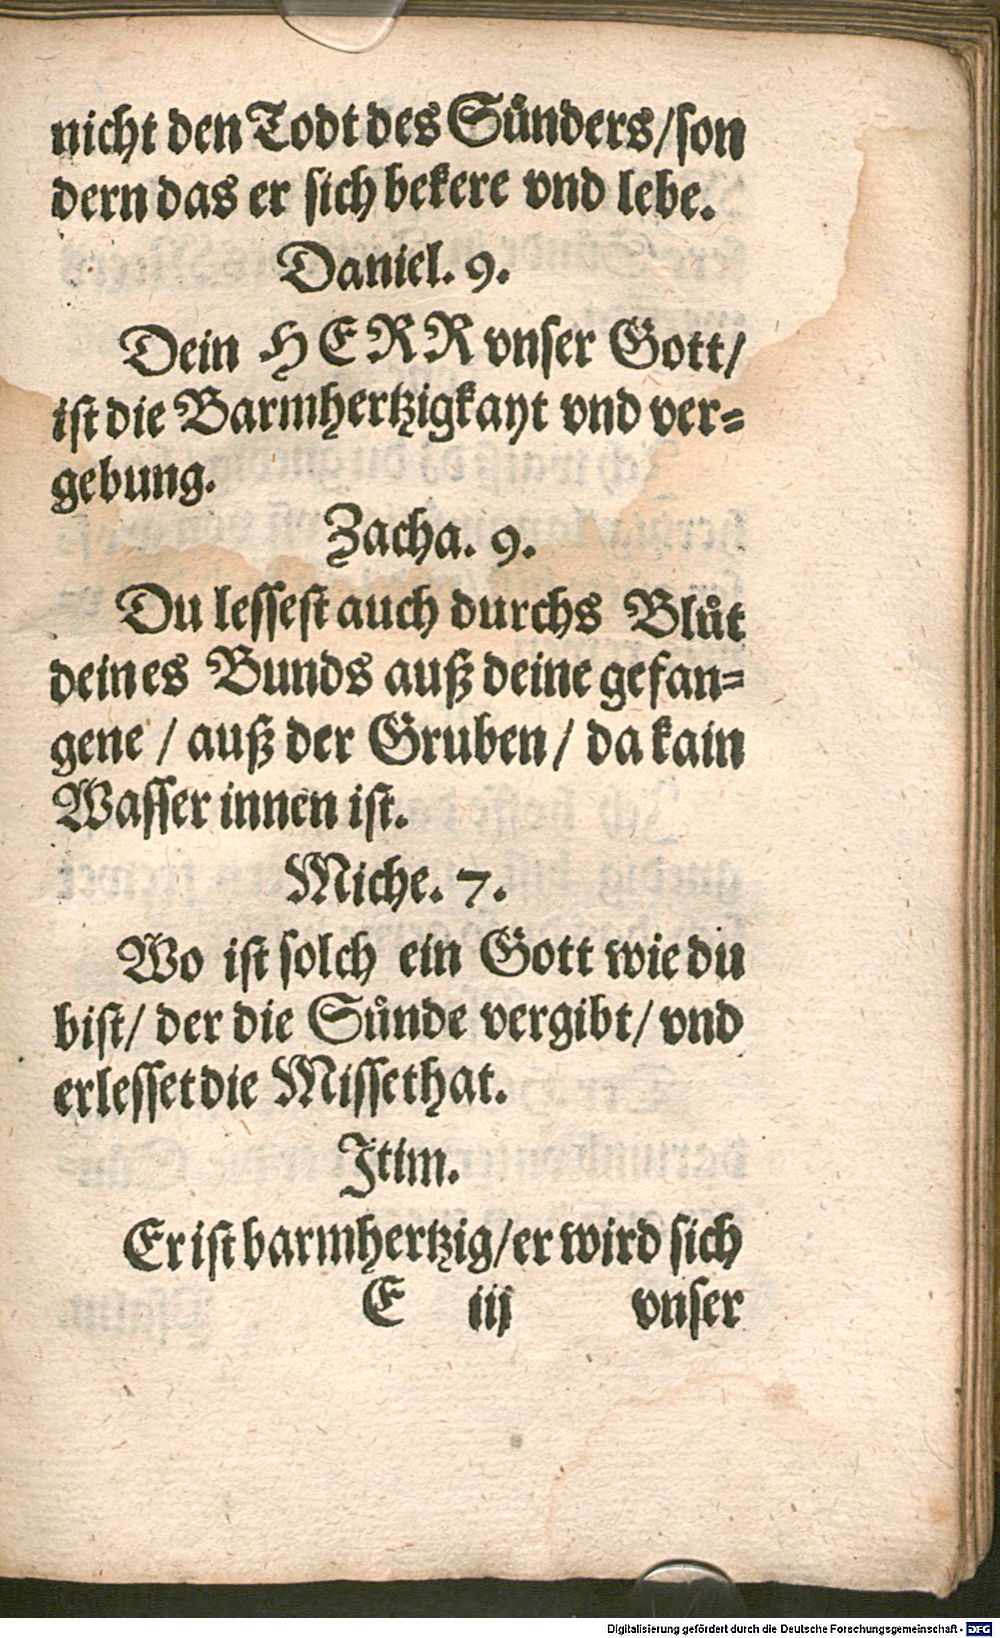 nicht den Todt des Sünders/son
dern das er sich bekere vnd lebe.
Daniel. 9.
Dein HERR vnser Gott/
ist die Barmhertzigkayt vnd ver=
gebung.
Zacha. 9.
Du lessest auch durchs Blůt
deines Bunds auß deine gefan=
gene / auß der Gruben/ da kain
Wasser innen ist.
Miche. 7.
Wo ist solch ein Gott wie du
bist/ der die Sünde vergibt/ vnd
erlesset die Missethat.
Jtim.
Er ist barmhertzig/er wird sich
E iij vnser
Digitalisierung gefördert durch die Deutsche Forschungsgemeinschaft - DFG